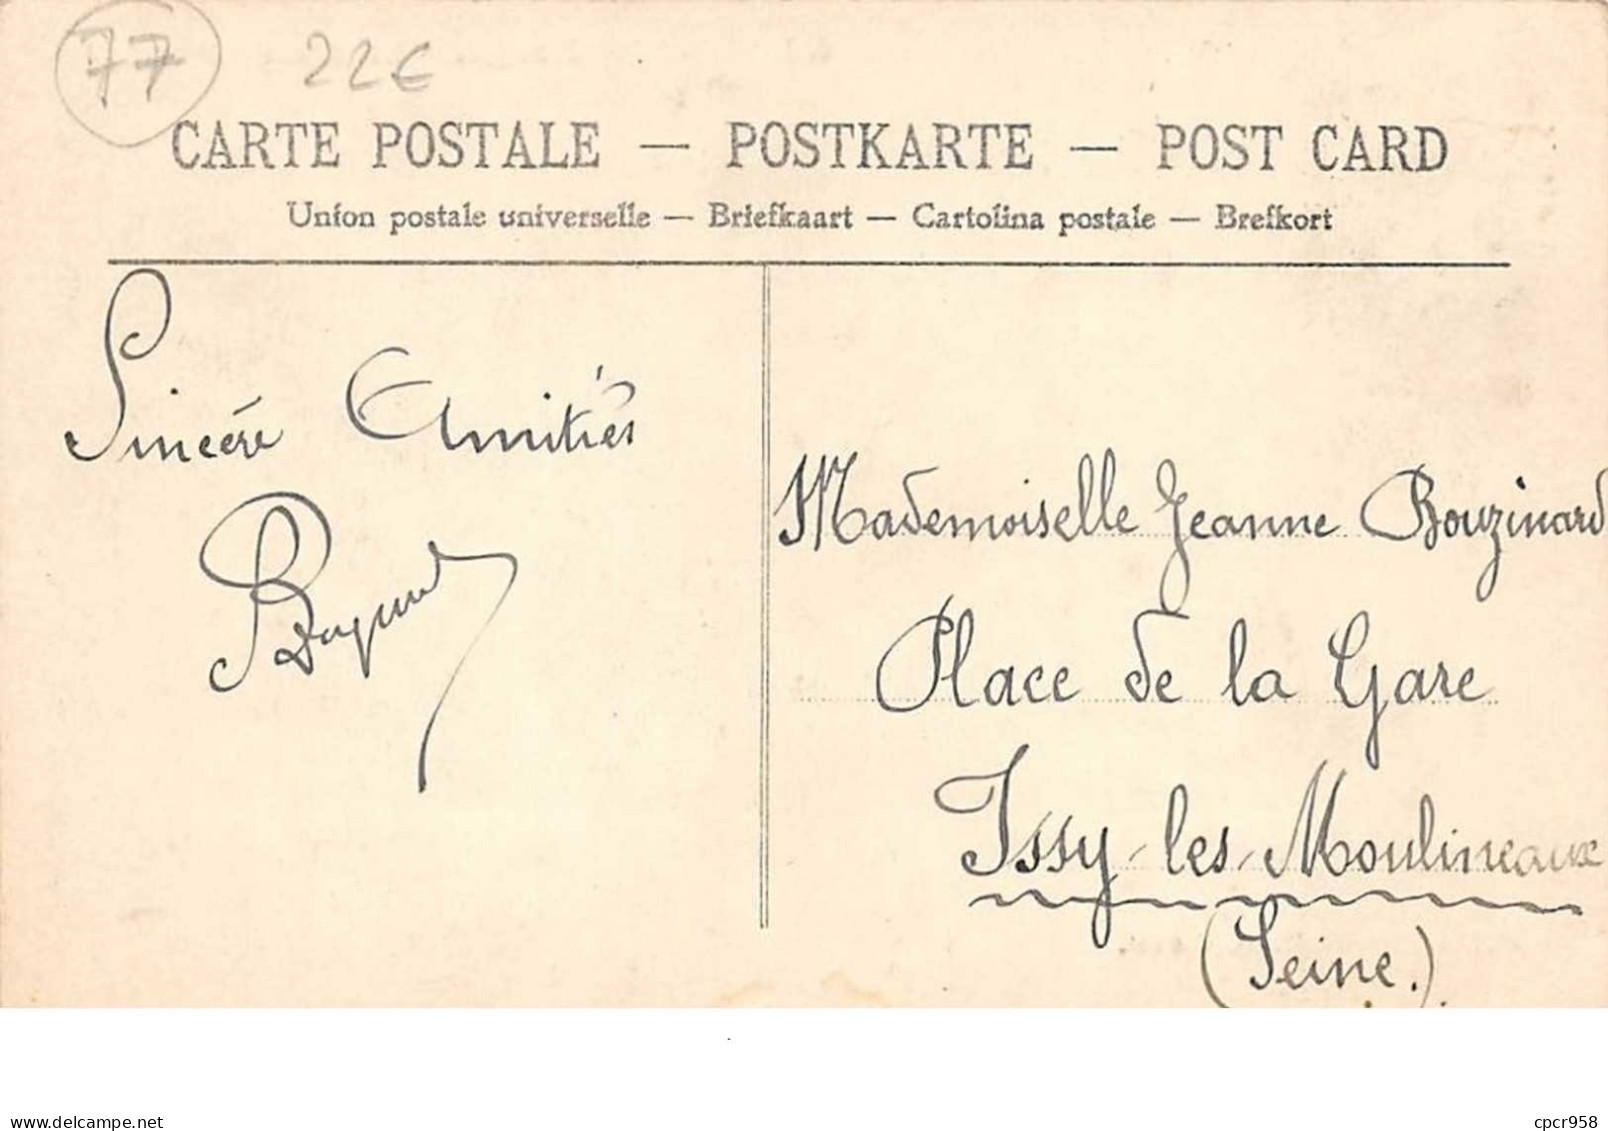 77 22€
CARTE POSTALE — POSTKARTE — POST CARD
Union postale universelle — Briefkaart — Cartolina postale — Brefkort
Sincère Amitiés
Mademoiselle Jeanne Bouzinard
Place de la Gare
Issy-les-Moulineaux
(Seine.)
delcampe.net
cpcr958